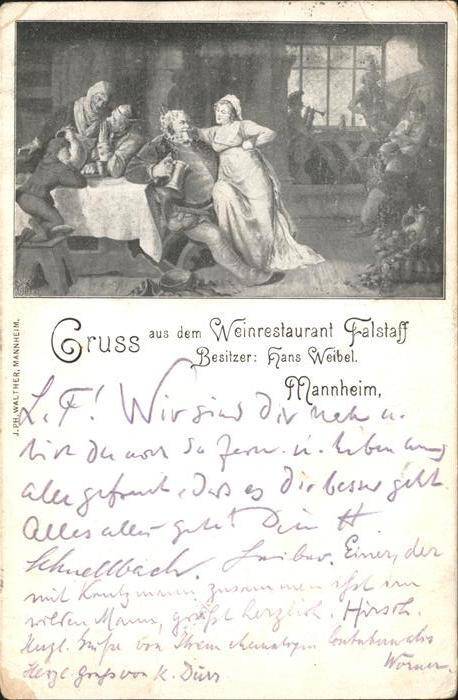 Gruss aus dem Weinrestaurant Falstaff
Besitzer: Hans Weibel.
Mannheim,
J. PH. WALTHER, MANNHEIM.
L. F! Wir sind dir nah u.
bist Du uns so fern. u. haben uns
alle gefreut, dass es Dir besser geht
Alles alles gute! Dein H
Schnellbach. Einer, der
mit zusammen ißt im
wilden Mann, grüßt herzlich. Hirsch.
Hrzl. Grüße von Ihrem ehemaligen
Werner.
Herzl. Gruß von K. Dürr